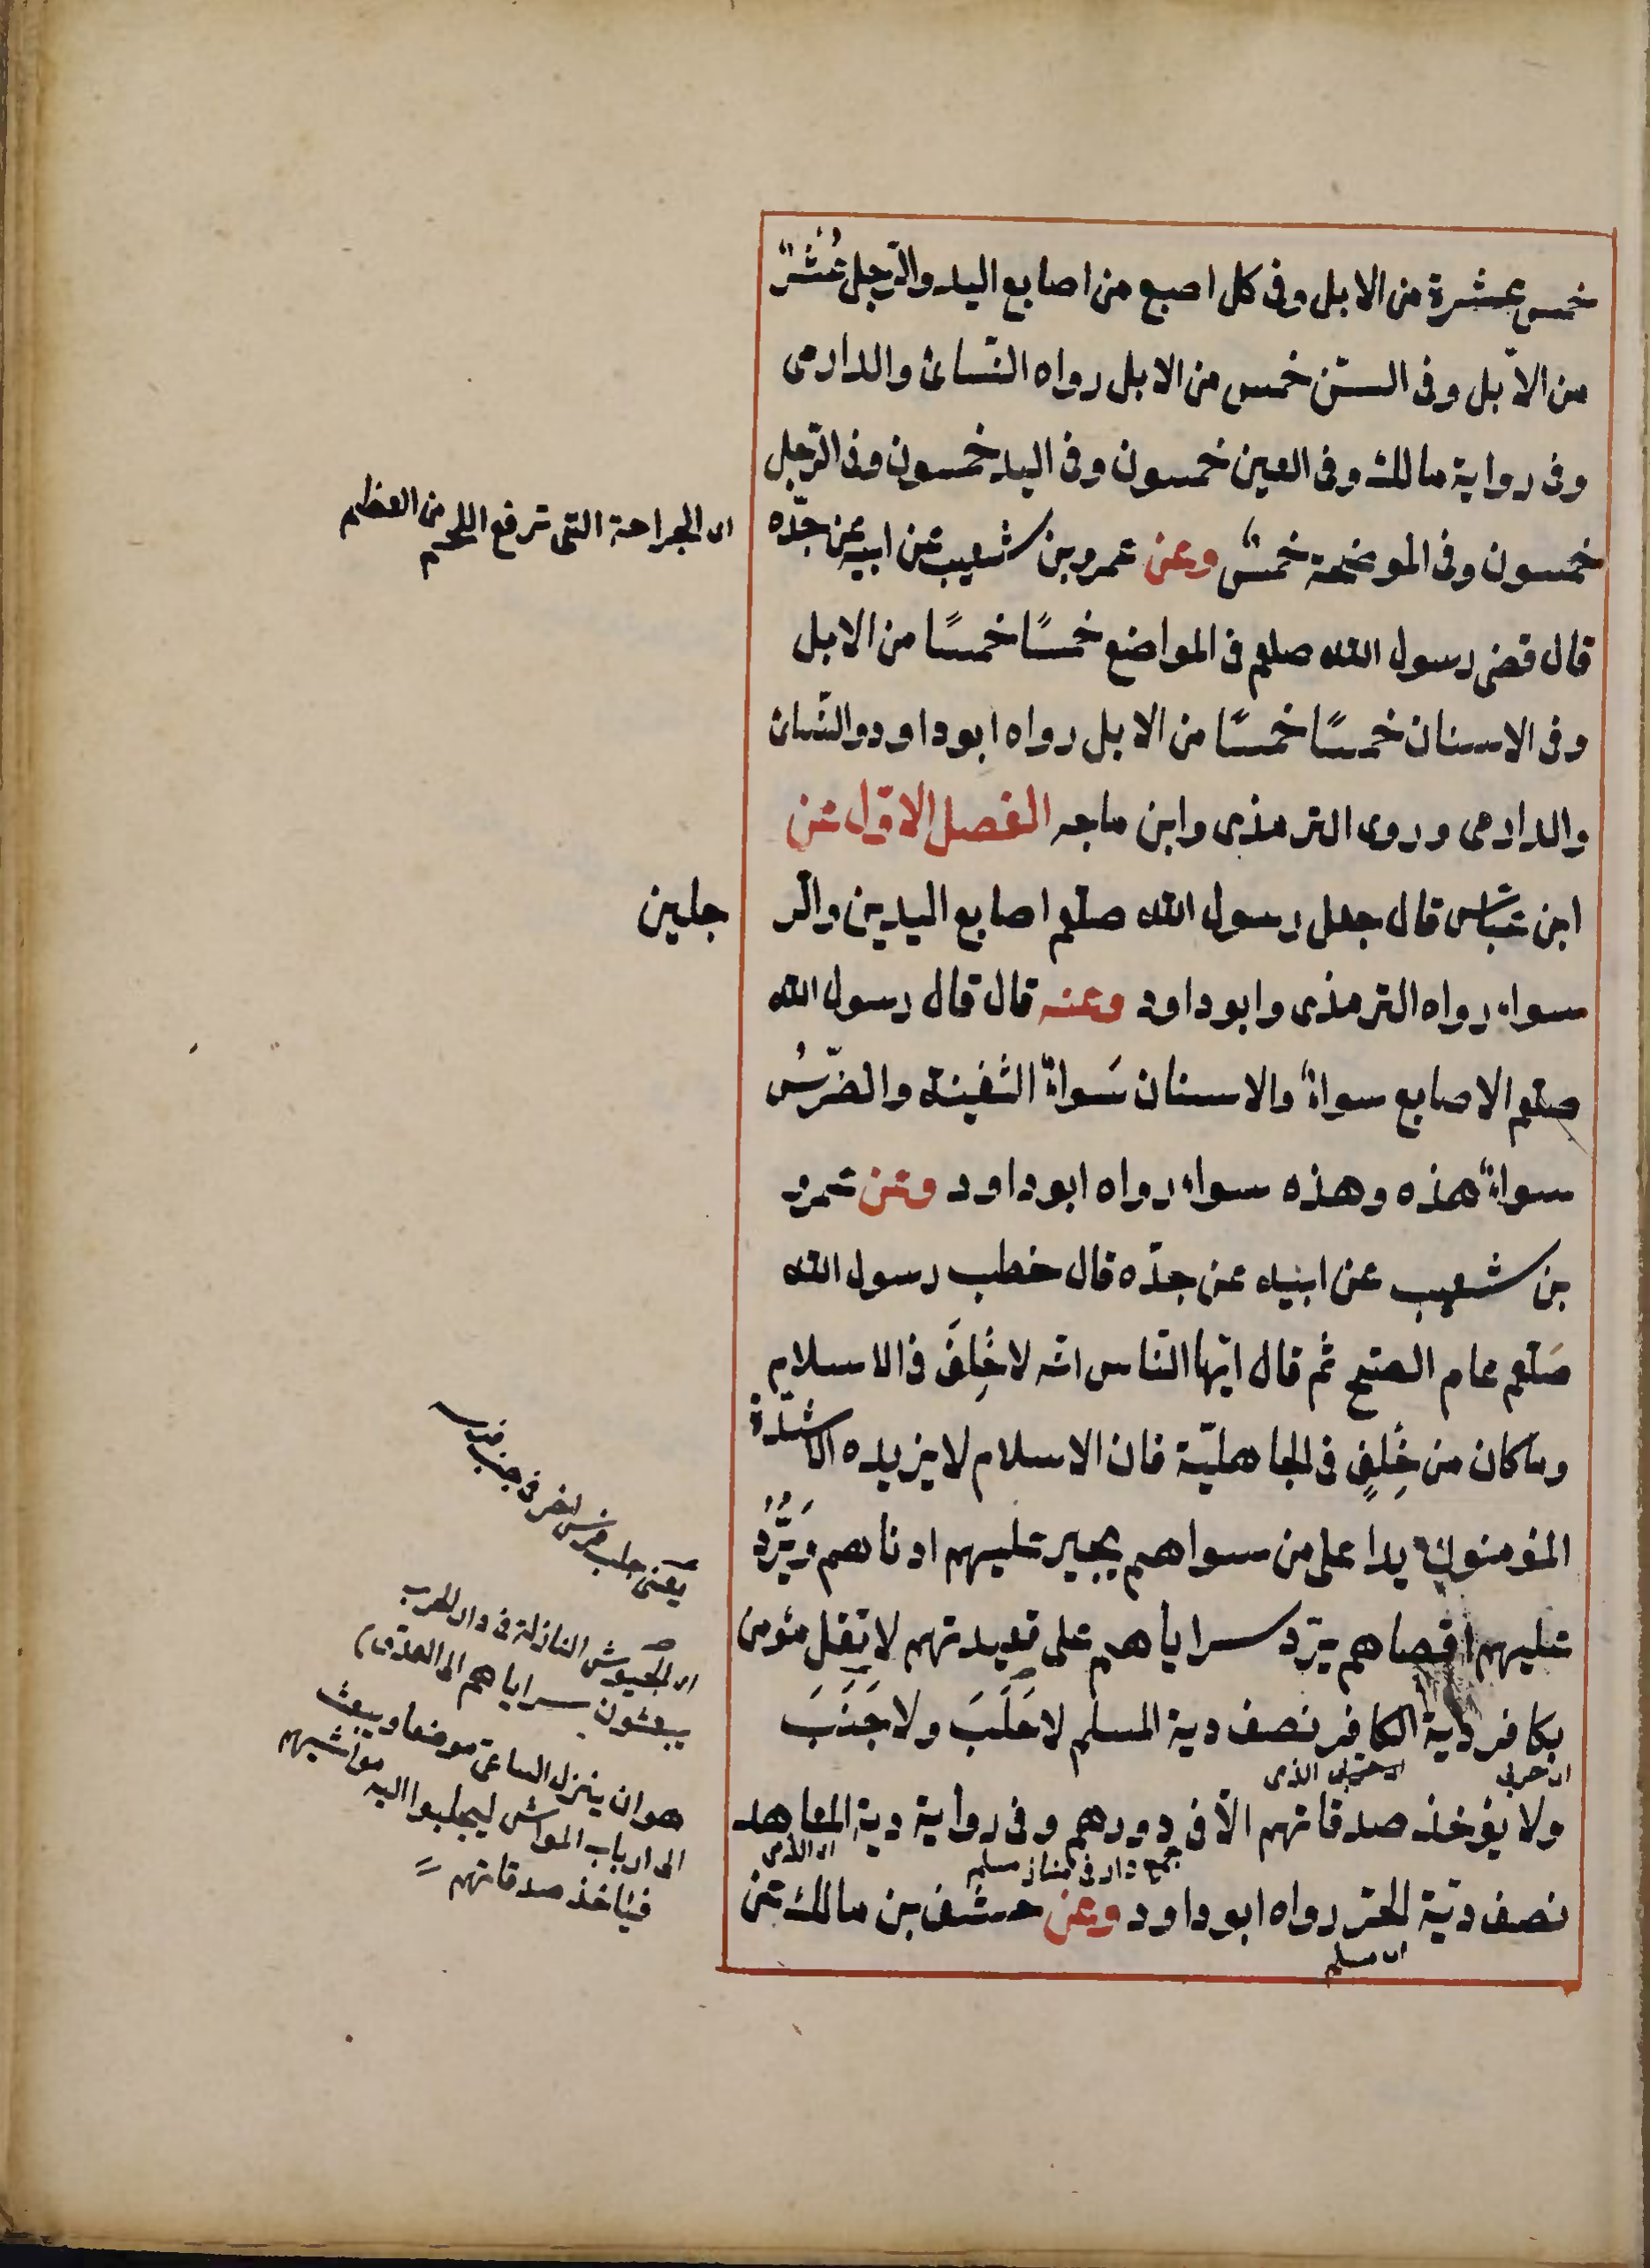 خمس عشرة من الابل وفى كل اصبع من اصابع اليد والرّجل عُشْرٌ
من الابل وفى السّن خمس من الابل رواه النّسائ والدارمى
وفى رواية مالك وفى العين خمسون وفى اليد خمسون وفى الرّجل
خمسون وفى الموضحة خمسٌ وعن عمرو بن شعيب عن ابيه عن جدّه
اى الجراحة التى ترفع اللحم من العظم
قال قضى رسول الله صلعم فى المواضع خمسًا خمسًا من الابل
وفى الاسنان خمسًا خمسًا من الابل رواه ابوداود والنّسائ
والدارمى وروى الترمذى وابن ماجه الفصل الاوّل عن
ابن عبّاس قال جعل رسول الله صلعم اصابع اليدين والر
جلين
سواء رواه الترمذى وابوداود وعنه قال قال رسول الله
صلعم الاصابع سواءٌ والاسنان سَواءٌ الثفينة والضّرسُ
سواءٌ هذه وهذه سواء رواه ابوداود وعن عمرو
بن شعيب عن ابنيه عن جدّه قال خطب رسول الله
صَلعم عام الفتح ثم قال ايّها النّاس انّه لا خِلِفَ فى الاسلام
وما كان من خِلفٍ فى الجاهليّة فان الاسلام لا يزيده الا شدّة
المؤمنون يدا على من سواهم يجير عليهم ادناهم وَيَرُدُّ
عليهم اقصاهم يرّد سراياهم على قعيدتهم لا يقتل مؤمن
بكافر دية الكافر نصف دية المسلم لا جَلَبَ ولا جَنَبَ
اى حربى
الذى
ولا يؤخذ صدقاتهم الّا فى دورهم وفى رواية دية المعاهد
جمع دار فى
مسلم
اى الذمى
نصف ديّة الحرّ رواه ابوداود وعن خشف بن مالك عن
اى مسلم
يعنى جلب فرس اخر فى جنب فرسه
اى الجيوش النازلة فى دار الحرب
يبعثون سراياهم الى العدوّ
هو ان ينزل الساعى موضعا ويبعث
الى ارباب المواشى ليجلبوا اليه مواشيهم
فيأخذ صدقاتهم